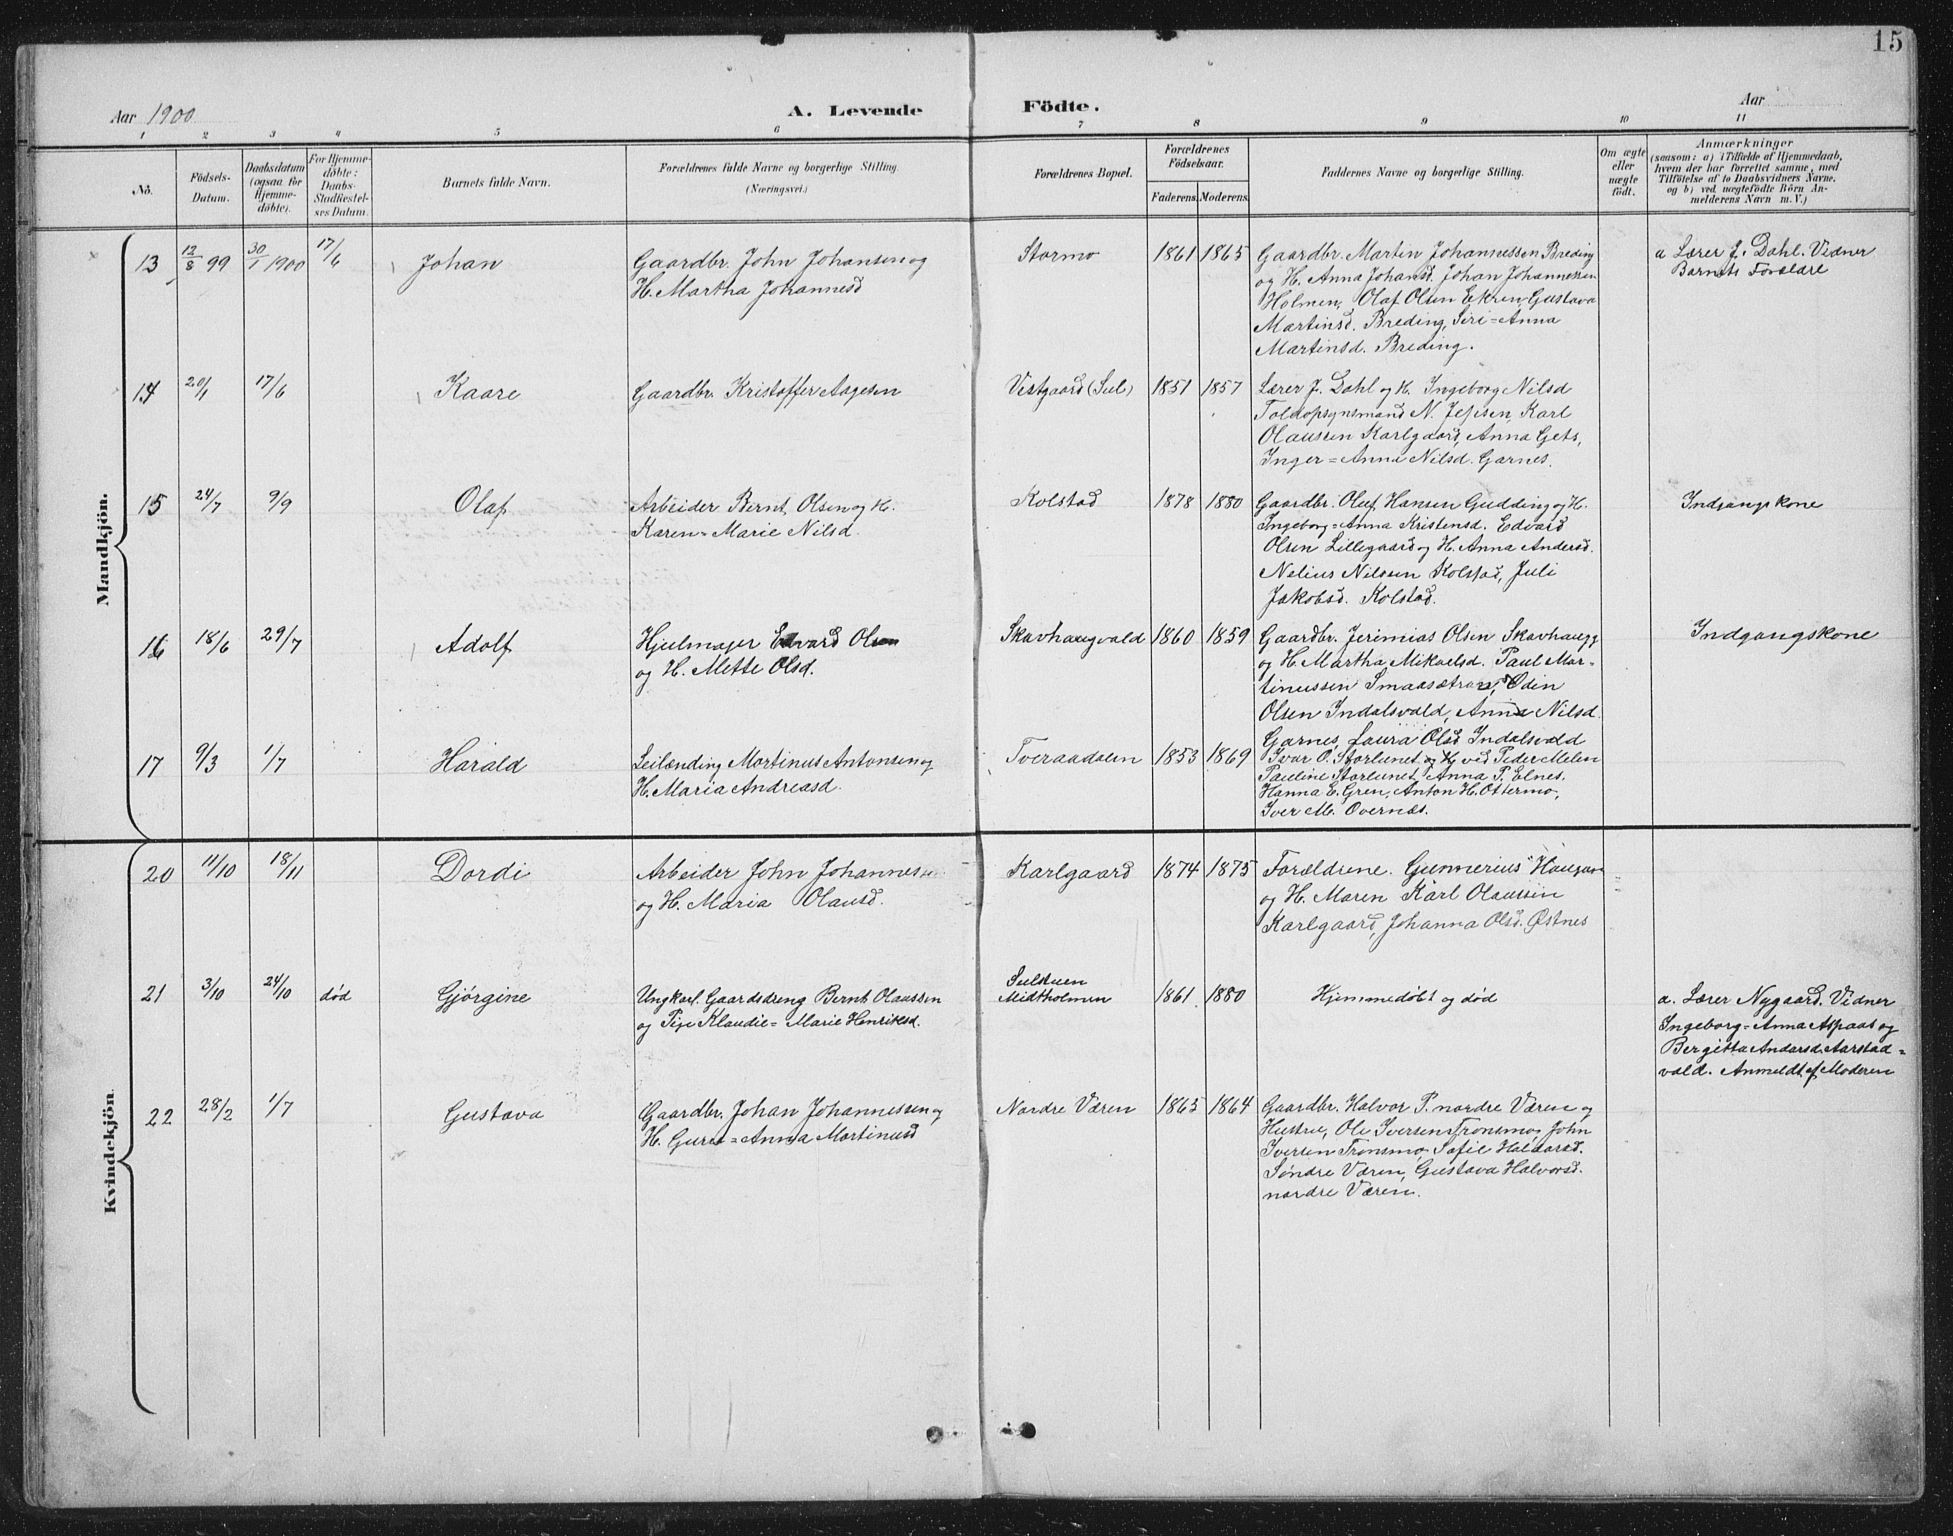 15
Aar 1900
A. Levende Födte.
Aar
1 2 3 4 5 6 7 8 9 10 11
No.
Födsels-
Datum.
Daabsdatum
(ogsaa for
Hjemme-
döbte).
For Hjemme-
döbte:
Daabs-
Stadfæstel-
ses Datum.
Barnets fulde Navn.
Forældrenes fulde Navne og borgerlige Stilling.
(Næringsvei.)
Forældrenes Bopæl.
Forældrenes
Födselsaar.
Faderens. Moderens.
Faddernes Navne og borgerlige Stilling.
Om ægte
eller
uægte
födt.
Anmærkninger
(saasom: a) i Tilfælde af Hjemmedaab,
hvem der har forrettet samme, med
Tilföielse af to Daabsvidners Navne,
og b) ved uægtefödte Börn An-
melderens Navn m. V.)
Mandkjön.
13 12/8 99 30/1 1900 17/6 Johan
Gaardbr. John Johansen og
H. Martha Johannesd
Stormo 1861 1865
Gaardbr. Martin Johannessen Breding
og H. Anna Johansd. Johan Johannessen
Holmen, Olaf Olsen Ekren, Gustava
Martinsd. Breding, Siri=Anna
Martinsd. Breding.
a Lærer J. Dahl. Vidner
Barnets Forældre
14 20/1 17/6 Kaare
Gaardbr. Kristoffer Aagesen
Vestgaard (Sul) 1851 1857
Lærer J. Dahl og H. Ingeborg Nilsd
Toldopsynsmand N. Jepsen, Karl
Olaussen Karlgaard, Anna Gets,
Inger=Anna Nilsd. Garnes.
15 24/7 9/9 Olaf
Arbeider Bernt Olsen og H.
Karen=Marie Nilsd.
Kolstad 1878 1880
Gaardbr. Oluf Hansen Gudding og H.
Ingeborg=Anna Kristensd. Edvard
Olsen Lillegaard og H. Anna Andersd.
Nelius Nilssen Kolstad, Juli
Jakobsd. Kolstad.
Indgangskone
16 18/6 29/7 Adolf
Hjulmager Edvard Olsen
og H. Mette Olsd.
Skavhaugvald 1860 1859
Gaardbr. Jerimias Olsen Skavhaugg
og H. Martha Mikaelsd. Paul Mar-
tinussen Odin
Olsen Indalsvald, Anna Nilsd.
Garnes, Laura Olsd Indalsvald
Indgangskone
17 9/3 1/7 Harald
Leilænding Martinus Antonsen og
H. Maria Andreasd.
Tveraadalen 1853 1869
Ivar O. Storlunet og H ved Peder Melen
Pauline Storlunet, Anna P. Elnes.
Hanna E. Gren, Anton H. Ottermo,
Iver M. Overnæs.
Kvindekjön.
20 11/10 18/11 Dordi
Arbeider John Johannessen
og H. Maria Olausd.
Karlgaard 1874 1875
Forældrene. Gunnerius Haugan
og H. Maren Karl Olaussen
Karlgaard, Johanna Olsd. Østnes
21 3/10 24/10 død Gjørgine
Ungkarl. Gaardsdreng Bernt Olaussen
og Pige Klaudie=Marie Henriksd.
Sulstuen
Midtholmen 1861 1880
Hjemmedøbt og død
a. Lærer Nygaard. Vidner
Ingeborg=Anna Aspaas og
Bergitta Andersd. Aarstad=
vald. Anmeldt af Moderen
22 28/2 1/7 Gustava
Gaardbr. Johan Johannessen og
H. Guru=Anna Martinusd
Nordre Væren 1865 1864
Gaardbr. Halvor P. nordre Væren og
Hustru, Ole Iversen Tronsmo, John
Iversen Tronsmo, Sofie Haldorsd.
Søndre Væren, Gustava Halvorsd.
nordre Væren.